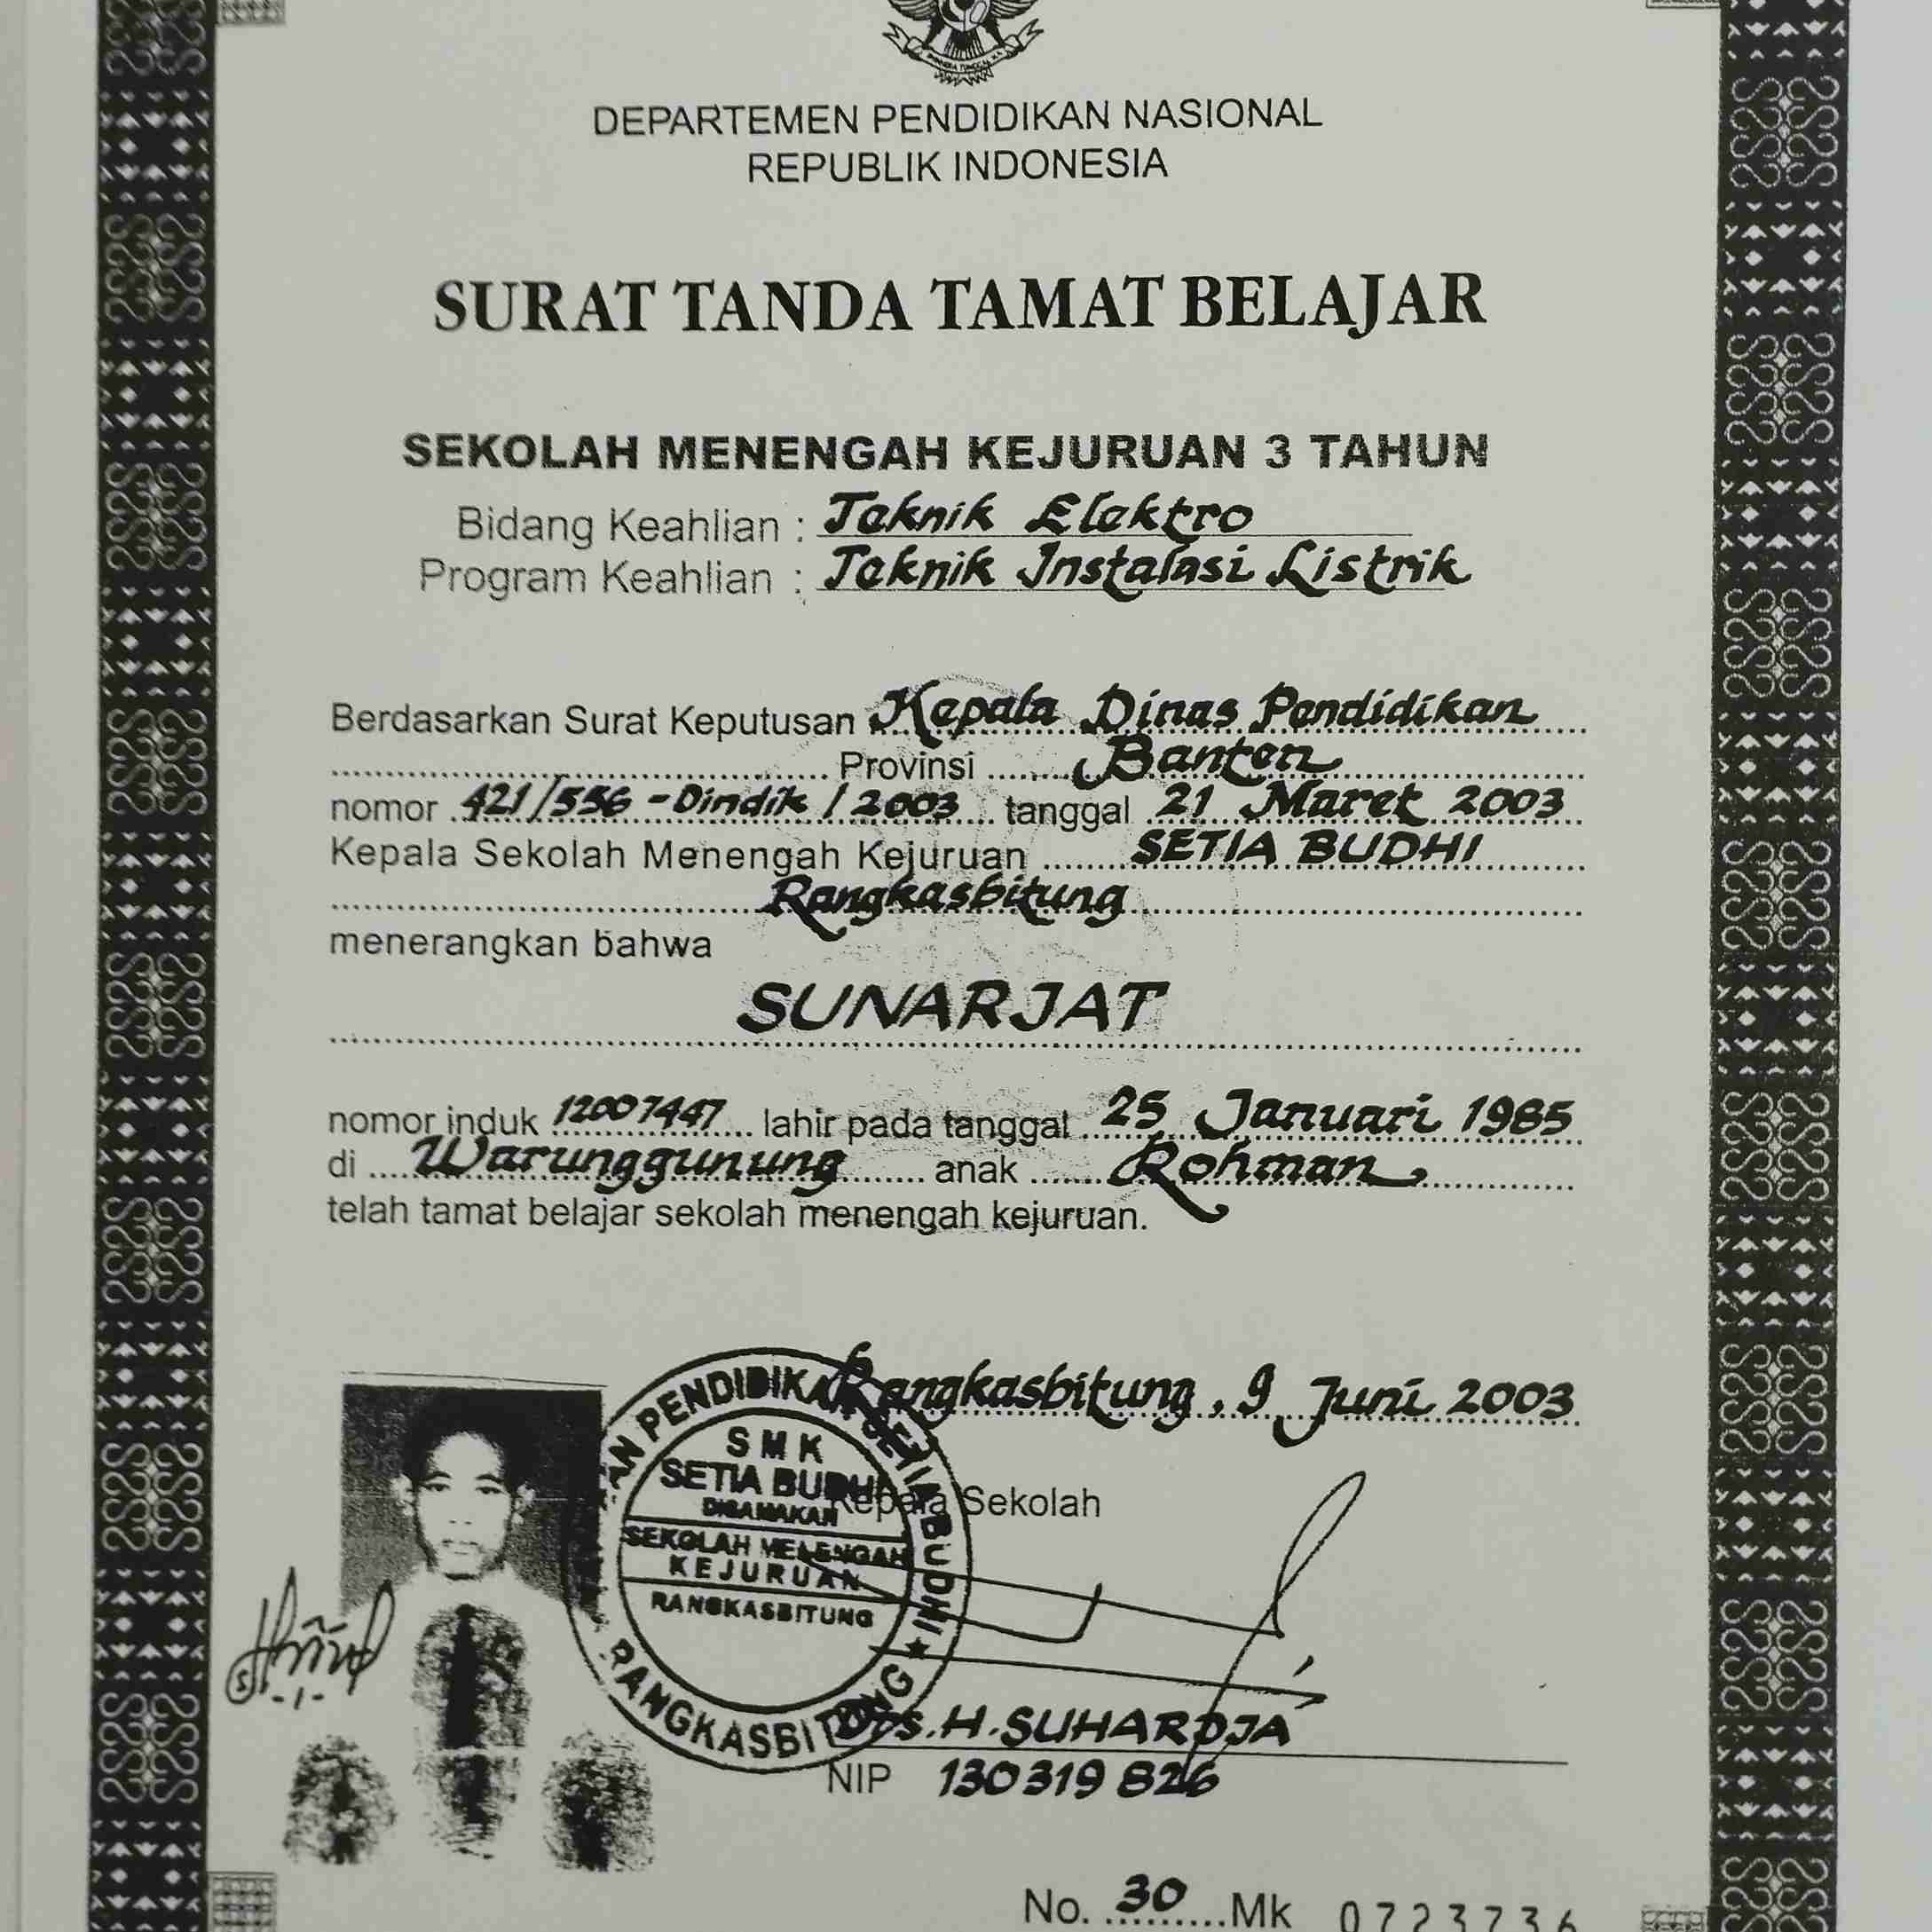 DEPARTEMEN PENDIDIKAN NASIONAL
REPUBLIK INDONESIA
SURAT TANDA TAMAT BELAJAR
SEKOLAH MENENGAH KEJURUAN 3 TAHUN
Bidang Keahlian : Teknik Elektro
Program Keahlian : Teknik Instalasi Listrik
Berdasarkan Surat Keputusan Kepala Dinas Pendidikan
Provinsi Banten
nomor 421/556 - Dindik / 2003 tanggal 21 Maret 2003
Kepala Sekolah Menengah Kejuruan SETIA BUDHI
Rangkasbitung
menerangkan bahwa
SUNARJAT
nomor induk 12007447 lahir pada tanggal 25 Januari 1985
di Warunggunung anak Rohman
telah tamat belajar sekolah menengah kejuruan.
Rangkasbitung, 9 Juni 2003
Kepala Sekolah
PENDIDIKAN SETIA BUDHI
SMK
SETIA BUDHI
DISAMAKAN
SEKOLAH MENENGAH
KEJURUAN
RANGKASBITUNG
RANGKASBITUNG
Drs. H. SUHARDJA
NIP 130 319 826
No. 30 Mk 0723736